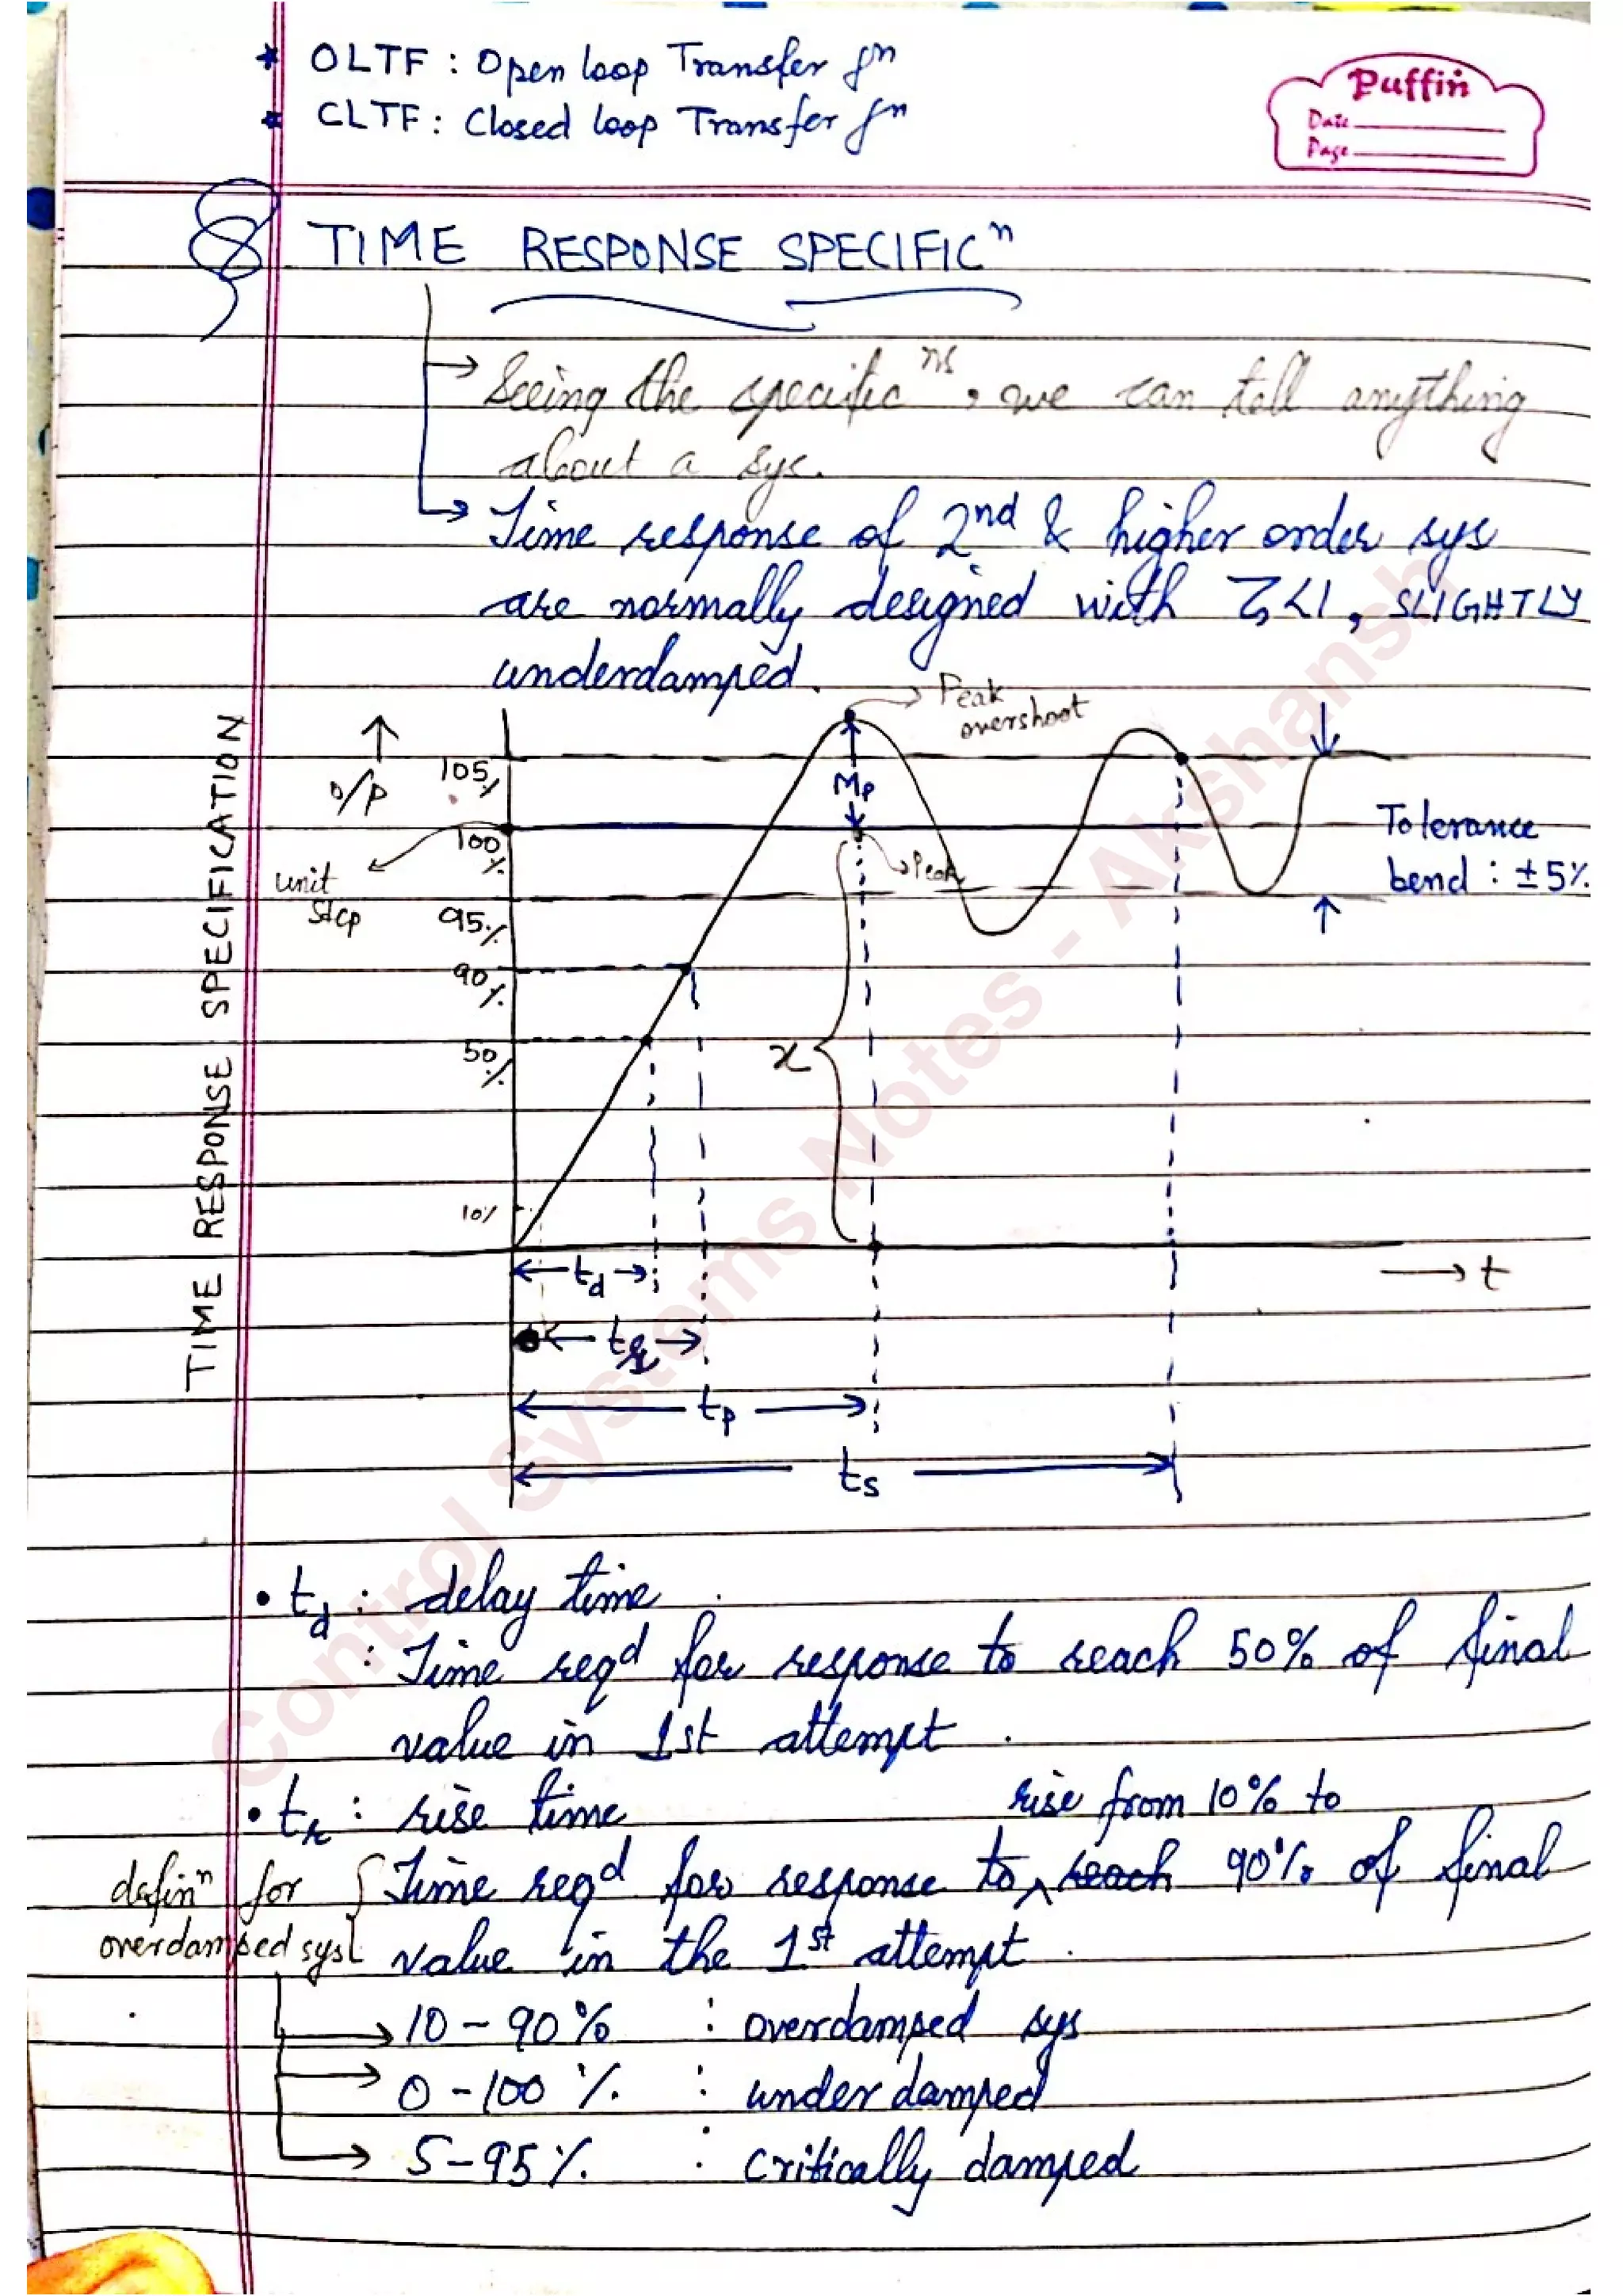 * OLTF : Open loop Transfer fⁿ
* CLTF : Closed loop Transfer fⁿ
Puffin
Date
Page
TIME RESPONSE SPECIFICⁿ
→ Seeing the specificⁿˢ, we can tell anything
about a sys.
→ Time response of 2nd & higher order sys
are normally designed with ζ<1, SLIGHTLY
underdamped.
TIME RESPONSE SPECIFICATION
↑
O/P
Peak
overshoot
105%
Mp
100%
unit
step
Peak
Tolerance
bend : ±5%
95%
90%
50%
x
10%
→ t
td
tr
tp
ts
Control Systems Notes - Akshansh
• td : delay time
: Time reqd for response to reach 50% of final
value in 1st attempt.
• tr : rise time
rise from 10% to
Time reqd for response to ^ reach 90% of final
value in the 1st attempt.
definⁿ for
overdamped sys
→ 10 - 90% : overdamped sys
→ 0 - 100 % : underdamped
→ 5 - 95 % : critically damped